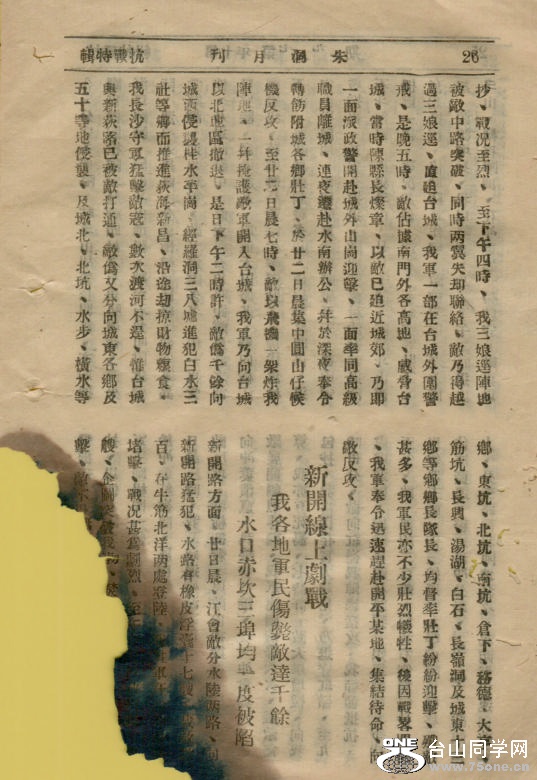 26 朱洞月刊 抗戰特輯
抄、戰况至烈、至下午四時、我三娘逕陣地
被敵中路突破、同時两翼失却聯絡、敵乃得越
過三娘逕、直廹台城、我軍一部在台城外圍警
戒、是晚五時、敵佔據南門外各高地、威脅台
城、當時陳縣長燦章、以敵已迫近城郊、乃即
一面派政警開赴城外山崗迎擊、一面率同高級
職員離城、連夜遷赴水南辦公、幷於深夜奉令
轉飭附城各鄉壯丁、於廿二日晨集中圓山仔候
機反攻、至廿二日晨七時、敵以飛機一架炸我
陣地、一幷掩護敵軍開入台城、我軍乃向台城
以北地區撤退、是日下午二時許、敵僞千餘向
城西侵襲桂水平崗、經羅洞三八墟進犯白水三
社等鄉而推進荻海新昌、沿途却掠財物糧食、
我長沙守軍猛擊敵寇、數次渡河不逞、惟台城
與新荻路已被敵打通、敵僞又分向城東各鄉及
五十等地侵襲、及城北、北坑、水步、橫水等
鄉、東坑、北坑、南坑、倉下、務德、大
筋坑、長興、湯湖、白石、長嶺洞及城東
鄉等鄉鄉長隊長、均督率壯丁紛紛迎擊、
甚多、我軍民亦不少壯烈犧牲、後因戰畧
、我軍奉令迅速趕赴開平某地、集結待命、向
敵反攻、
新開線上劇戰
我各地軍民傷斃敵達千餘
水口赤坎三埠均一度被陷
新開路方面、廿日晨、江會敵分水陸两路、向
新開路猛犯、水路有橡皮浮囊十七
百、在牛筋北洋两處登陸、
堵擊、戰况甚爲劇烈、至
艘、企圖突破
擊、敵不
ONE 台山同学网
www.75one.cn